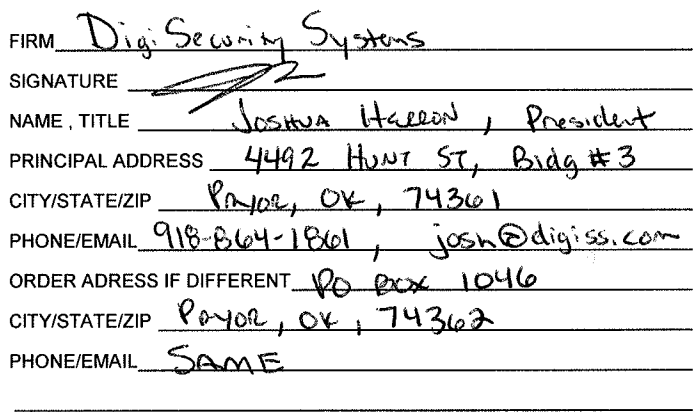 FIRM Digi Security Systems
SIGNATURE
NAME , TITLE JOSHUA HARRON , President
PRINCIPAL ADDRESS 4492 HUNT ST, Bldg #3
CITY/STATE/ZIP PRYOR, OK, 74361
PHONE/EMAIL 918-864-1861, josh@digiss.com
ORDER ADRESS IF DIFFERENT PO BOX 1046
CITY/STATE/ZIP PRYOR, OK, 74362
PHONE/EMAIL SAME